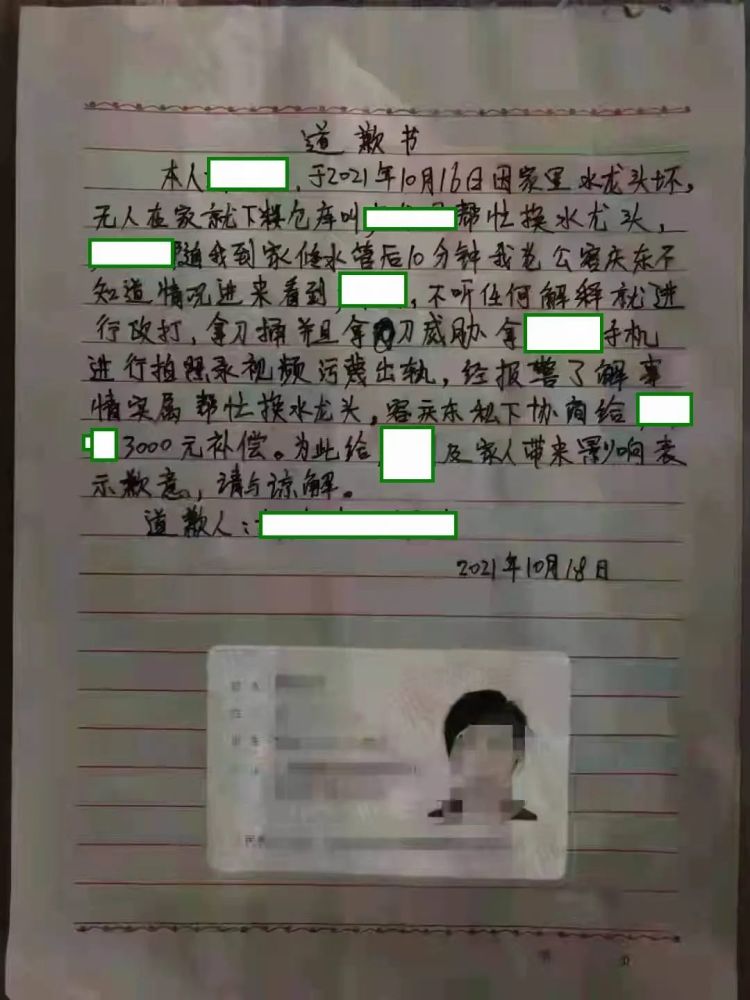 道歉书
本人 ，于2021年10月16日因家里水龙头坏，
无人在家就下楼仓库叫 帮忙换水龙头，
随我到家修水管后10分钟我老公客庆东不
知道情况进来看到 ，不听任何解释就进
行改打，拿刀捅并且拿刀威胁拿 手机
进行拍照录视频污蔑出轨，经报警了解事
情实属帮忙换水龙头，客庆东私下协商给
3000元补偿。为此给 及家人带来影响表
示歉意，请与谅解。
道歉人：
2021年10月18日